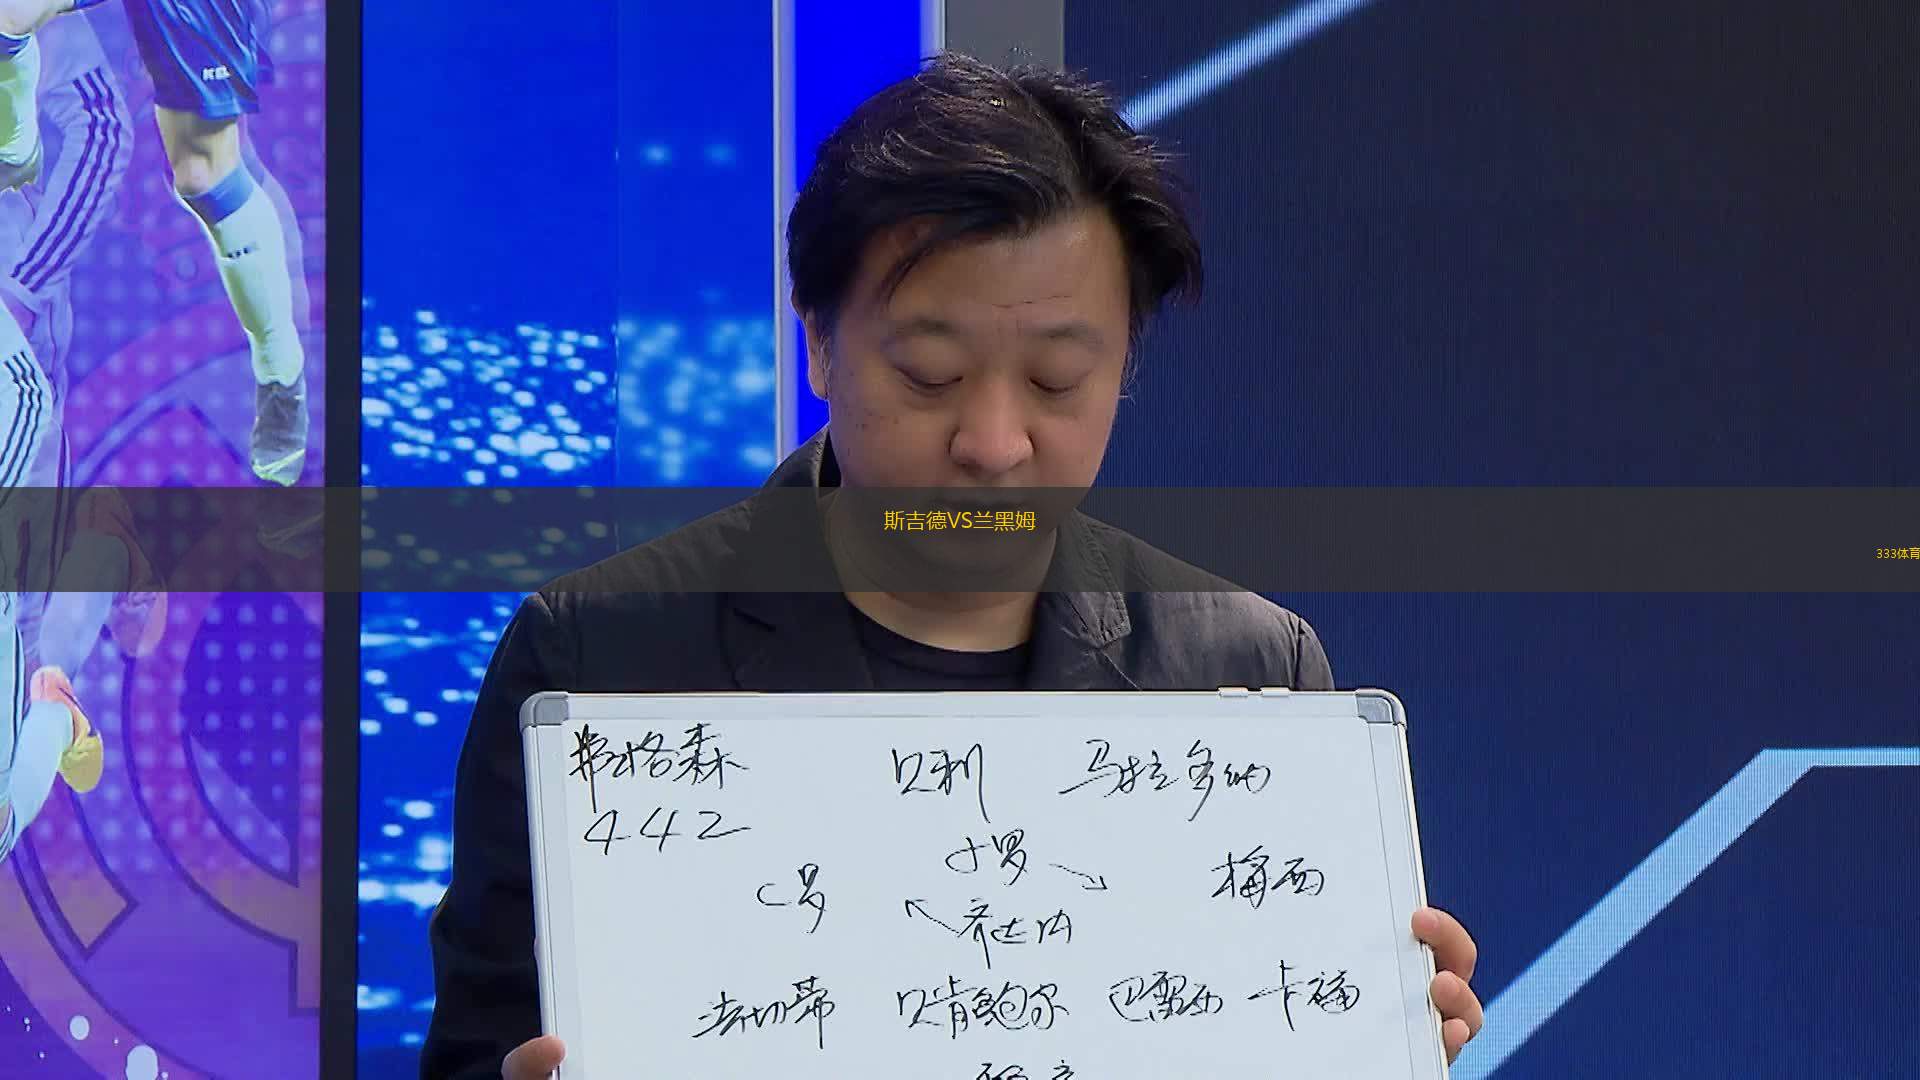 斯吉德VS兰黑姆
333体育
弗格森 贝利 马拉多纳
442
小罗
C罗 梅西
齐达内
法切蒂 贝肯鲍尔 巴雷西 卡福